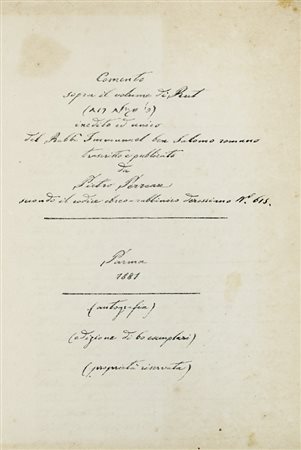 Comento
sopra il volume di Rut
(פי' מגילת רות)
inedito ed unico
del Rabbi Immanuel ben Salomo romano
trascritto e publicato
da
Pietro Perreau
secondo il codice ebreo-rabbinico derossiano Nº 615.
Parma
1881
(autografia)
(edizione di 60 esemplari)
(proprietà riservata)